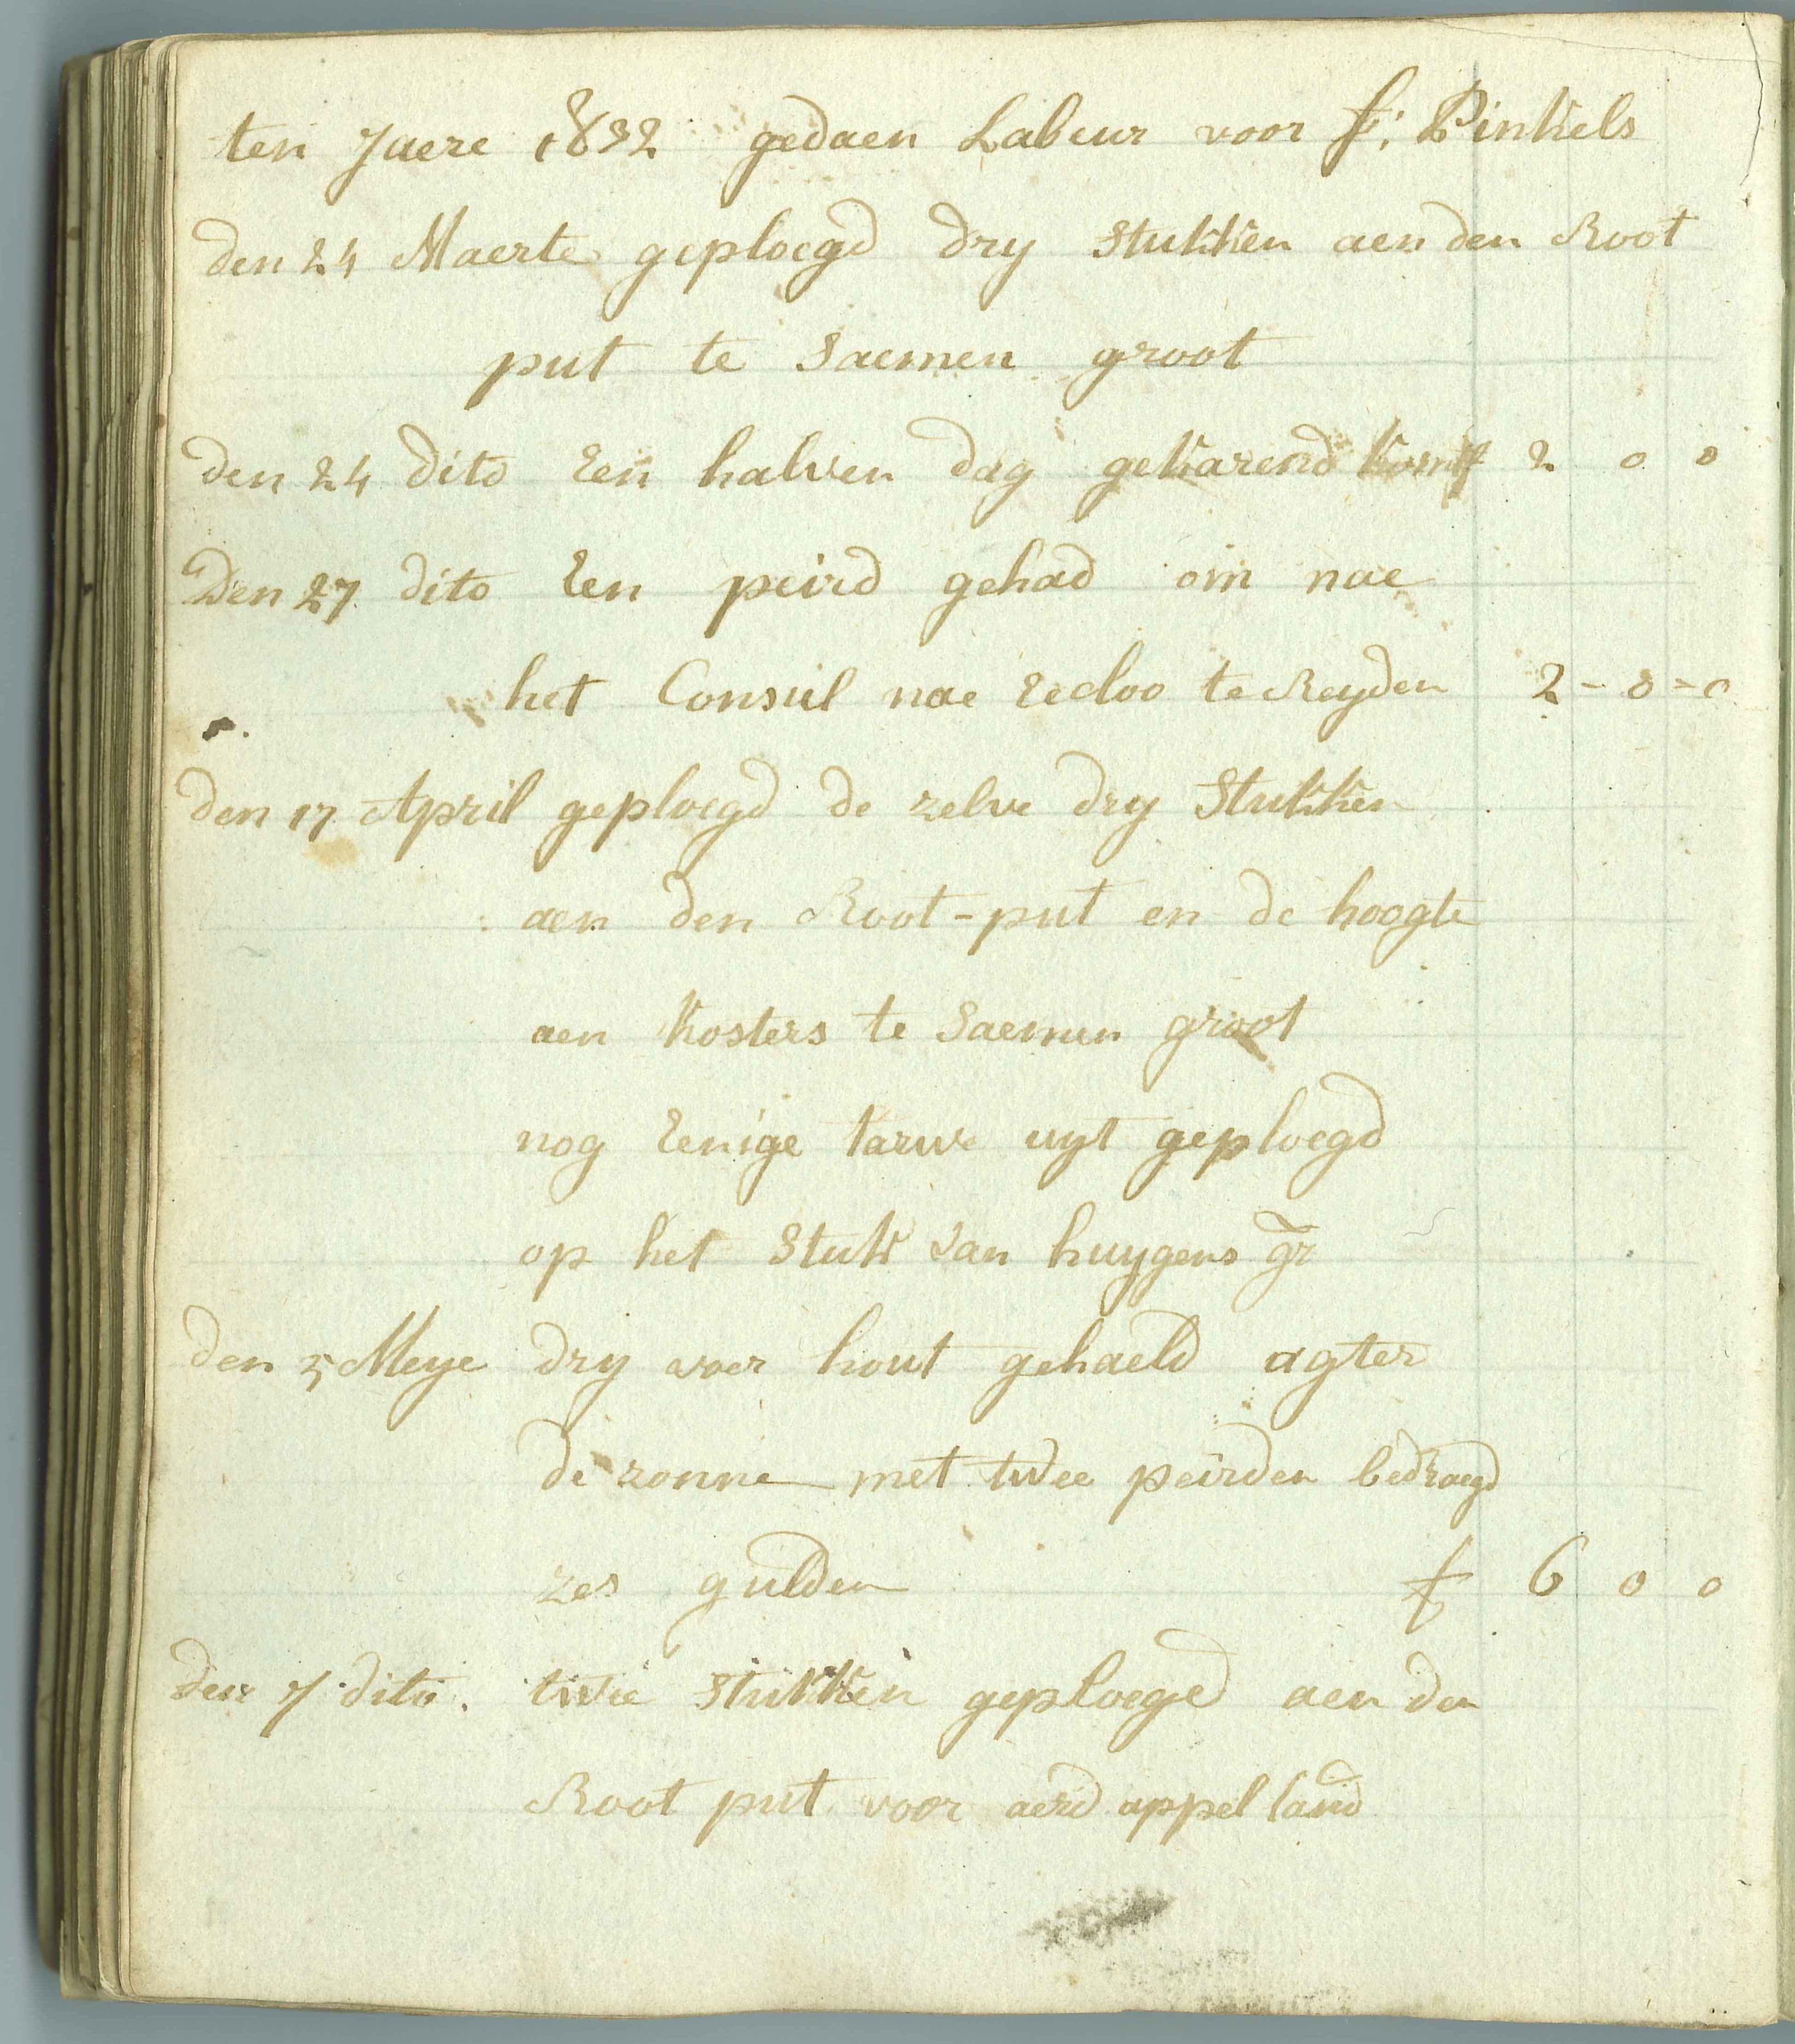 ten Jaere 1832 gedaen Labeur voor f: Pinkels
den 24 Maerte geploegd dry stukken aen den Root
put te saemen groot
den 24 dito Een halven dag gekarend komt 2 0 0
Den 27 dito Een peird gehad om nae
het Consiel nae Eecloo te Reyden 2 - 0 - 0
den 17 April geploegd de zelve dry Stukken
aen den Root-put en de hoogte
aen kosters te saemen groot
nog Eenige tarwe uyt geploegd
op het stuk van huygens gr
den 5 Meye dry voer hout gehaeld agter
de zonne met twee peirden bedraegd
zes gulden f 6 0 0
den 7 dito. twee stukken geploeged aen den
Root put voor aerd appel land